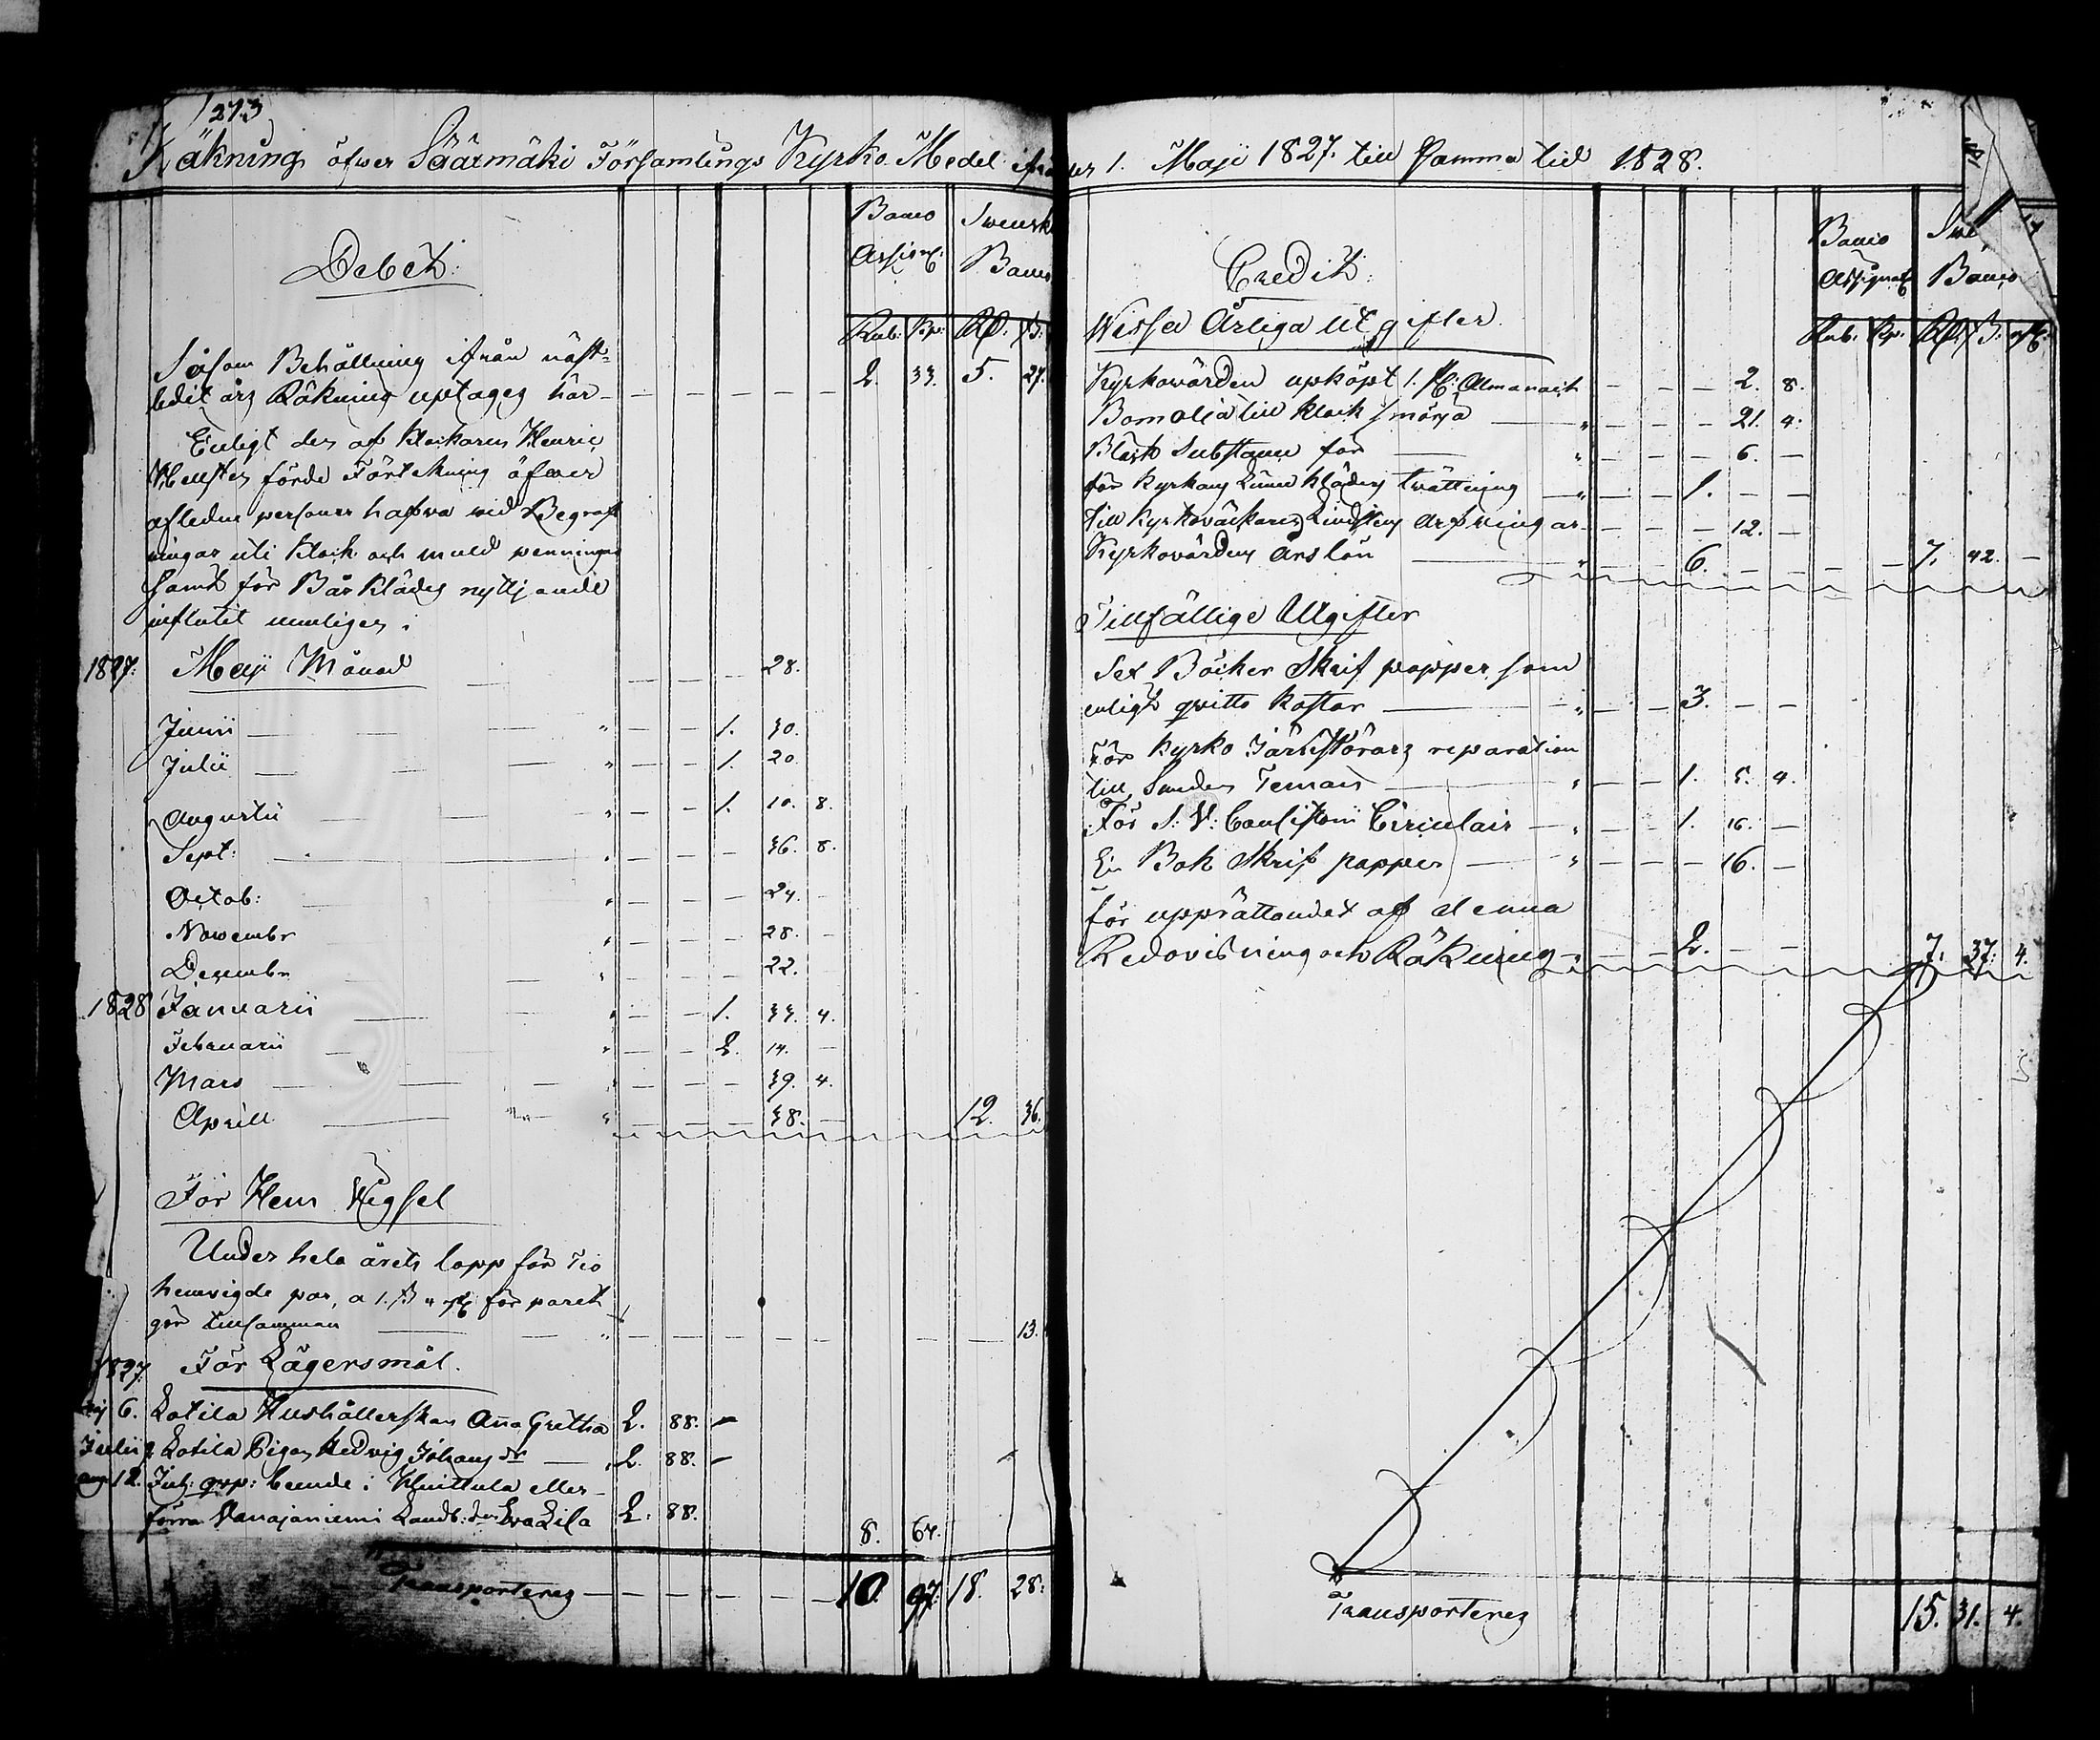 273
Räkning öfwer Säärmäki Församlings Kyrko Medel ifrån den 1. Maji 1827. till samma tid 1828.
Debet:
Banco Assign: Swensk Banco
Rub: Kp: Rd: ß:
Såsom Behållning ifrån näst-
ledit års Räkning uptages här — 2. 33. 5. 27.
Enligt den af Klockaren Henric
förde Förtekning öfwer
afledne personer hafva wid Begraf
ningar uti klock och mull penningar
samt för Bår Klädes nyttjande
influtit nemligen:
1827: Maji Månad — 28.
Junii — 1. 30.
Julii — 1. 20.
Augustii — 1. 10. 8.
Sept: — 36. 8.
Octob: — 24. —
Novembr — 28. —
Decembr — 22.
1828 Januarii — 1. 33. 4.
Februarii — 2. 14. —
Mars — 39. 4.
Aprill — 38. — 12. 36.
För Hem Wigsel
Under hela årets lopp för Tio
hemvigde par, a 1. ß för paret
gör tillsamman — 13.
1827. För Lägersmål.
Maj 6. Lotila Hushållerskan Anna Gretha 2. 88. —
Julii Lotila Pigan Hedvig Johans dr — 2. 88. —
aug. 12. Inh: boende i Huittula eller
förra Vanajaniemi Landb: d:n Eva Lisa 2. 88. 8. 64.
Transporteres — 10. 97. 18. 28.
Credit:
Banco Assignat Swe Banco
Rub. Kp. Rd. ß. rst:
Wissa Årliga Utgifter.
Kyrkovärden upköpt 1. st: Almanach — 2. 8.
Bomolja till klock smörja — 21. 4.
Bläck Substance för — 6. —
för Kyrkans Linne Kläders twättning — 1. — —
Till Kyrkoväktaren Lindsten — 12. —
Kyrkovärdens Årslön — 6. — — 7. 42. —
Tillfällige Utgifter
Sex Böcker Skrif papper, som
enligt qvitto kostar — 3. — —
För Kyrko reparation
till Smeden — 1. 5. 4.
För S: V: Circulair — 1. 16. —
En Bok Skrif papper — 16. —
för upprättandet af denna
Redovisning och Räkning — 2. — — 7. 37. 4.
Transporteres 15. 31. 4.